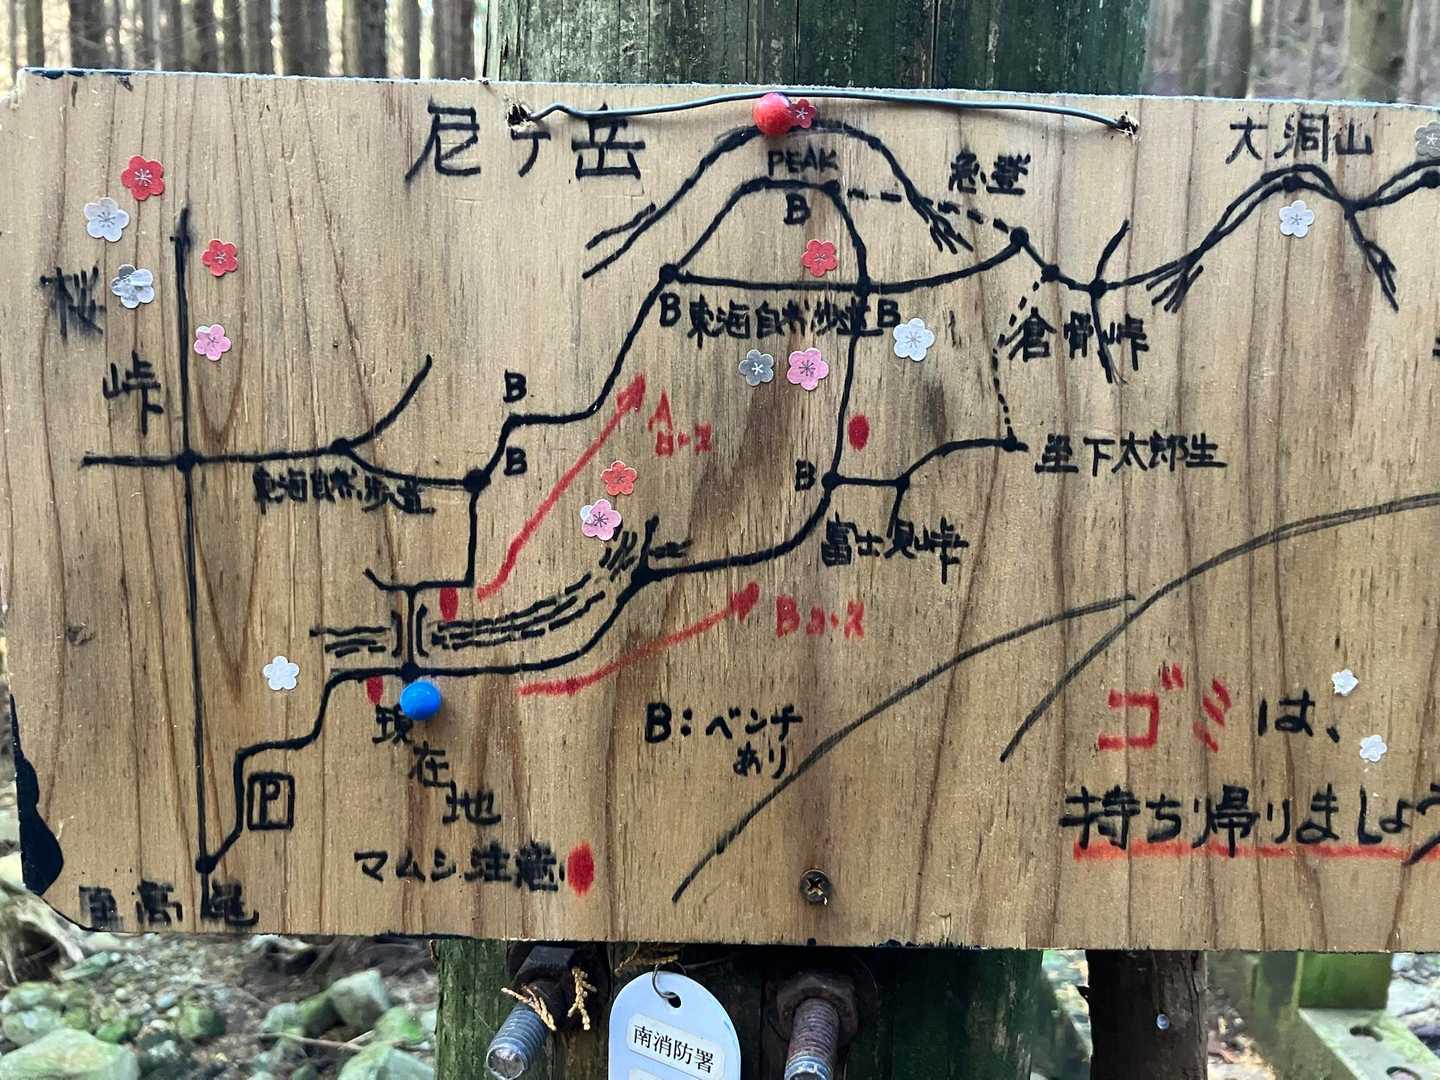 尼ヶ岳
大洞山
PEAK
急登
B
桜
峠
B
東海自然歩道
B
倉骨峠
B
B
Aコース
東海自然歩道
B
至下太郎生
富士見峠
Bコース
B:ベンチ
あり
現
在
地
P
ゴミは、
持ち帰りましょう
マムシ注意
至高尾
南消防署